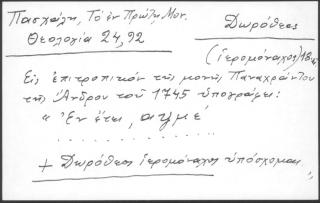 Πασχάλη, Τὸ ἐν Πρώτῃ Μον.
Θεολογία 24, 92
Δωρόθεος
(ἱερομόναχος) 18
Εἰς ἐπιτροπικὸν τῆς μονῆς Παναχράντου
τῆς Ἄνδρου τοῦ 1745 ὑπογράφει:
" Ἐν ἔτει, αψμέ
. . . . . . . . . . . . . .
+ Δωρόθεος ἱερομόναχος ὑπόσχομαι "